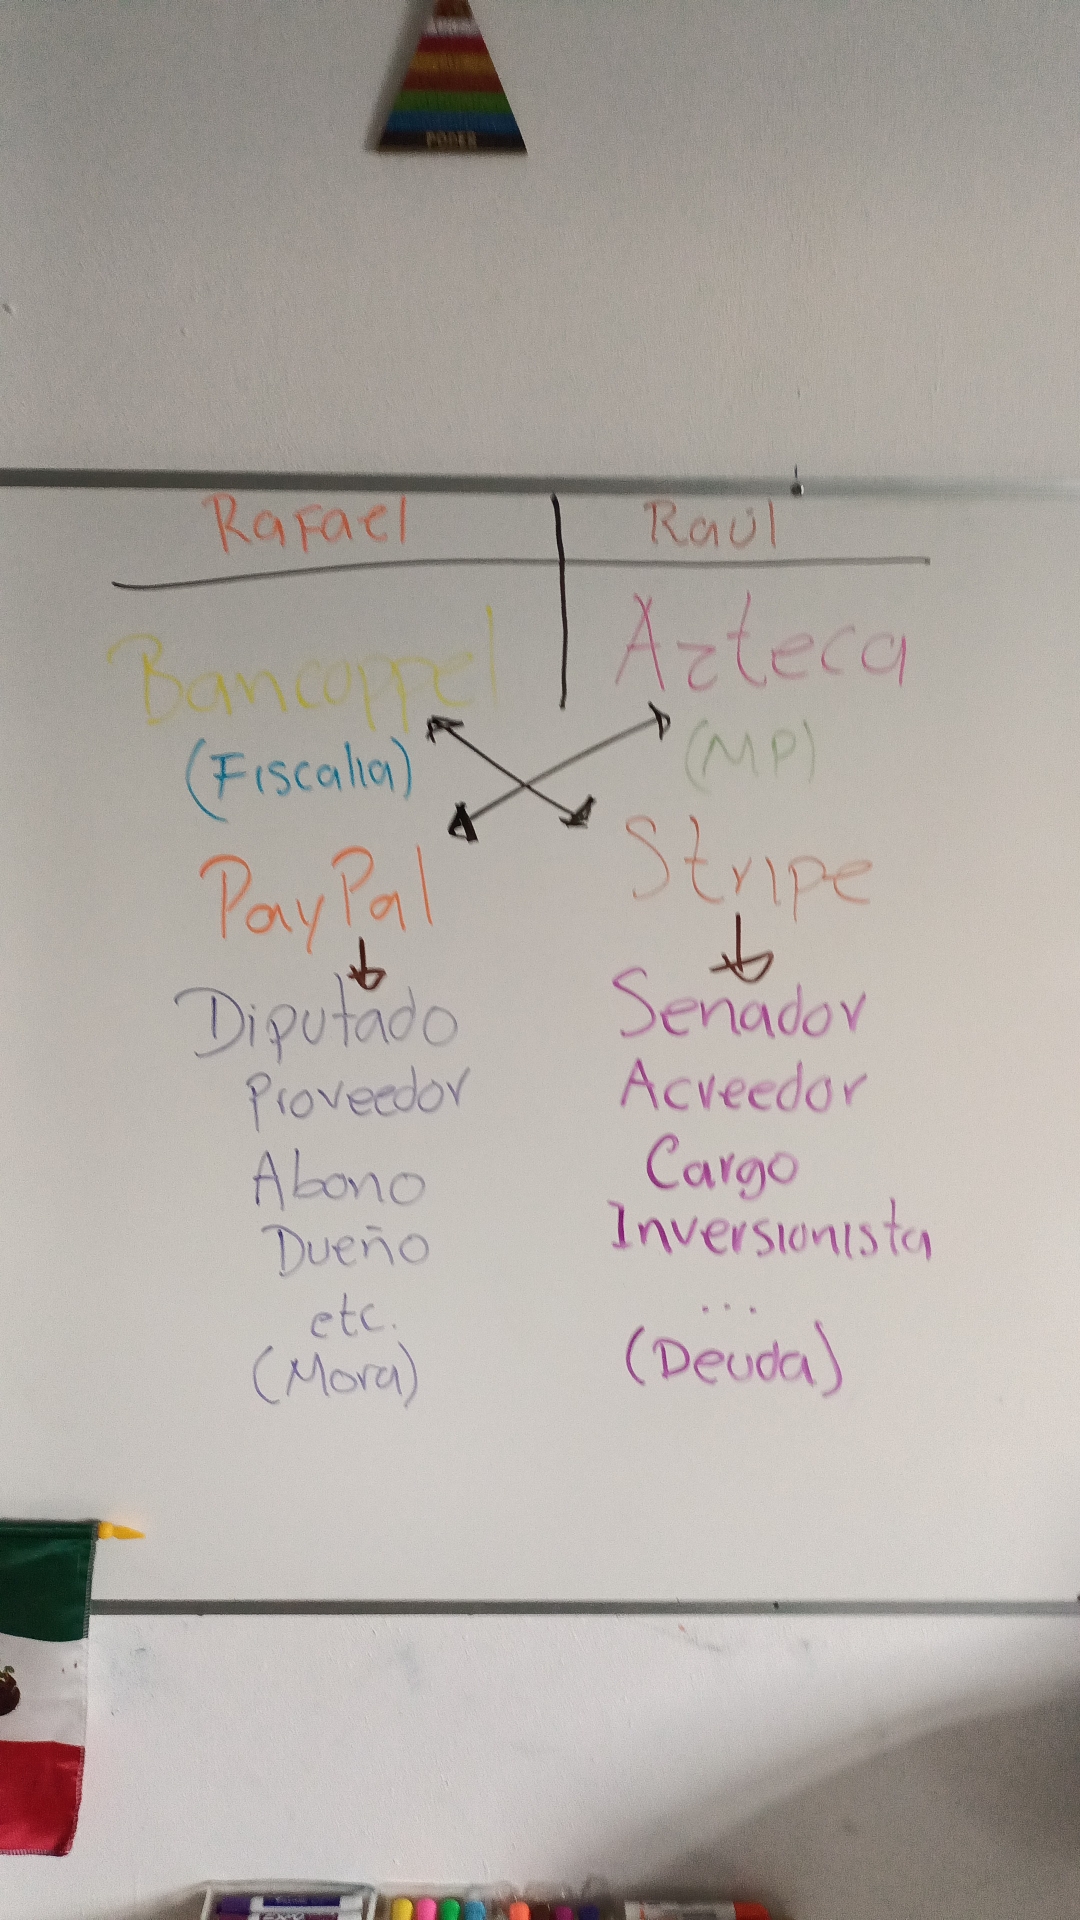 PODER
Rafael
Raúl
Bancoppel
Azteca
(Fiscalia)
(MP)
PayPal
Stripe
Diputado
Senador
Proveedor
Acreedor
Abono
Cargo
Dueño
Inversionista
etc.
...
(Mora)
(Deuda)